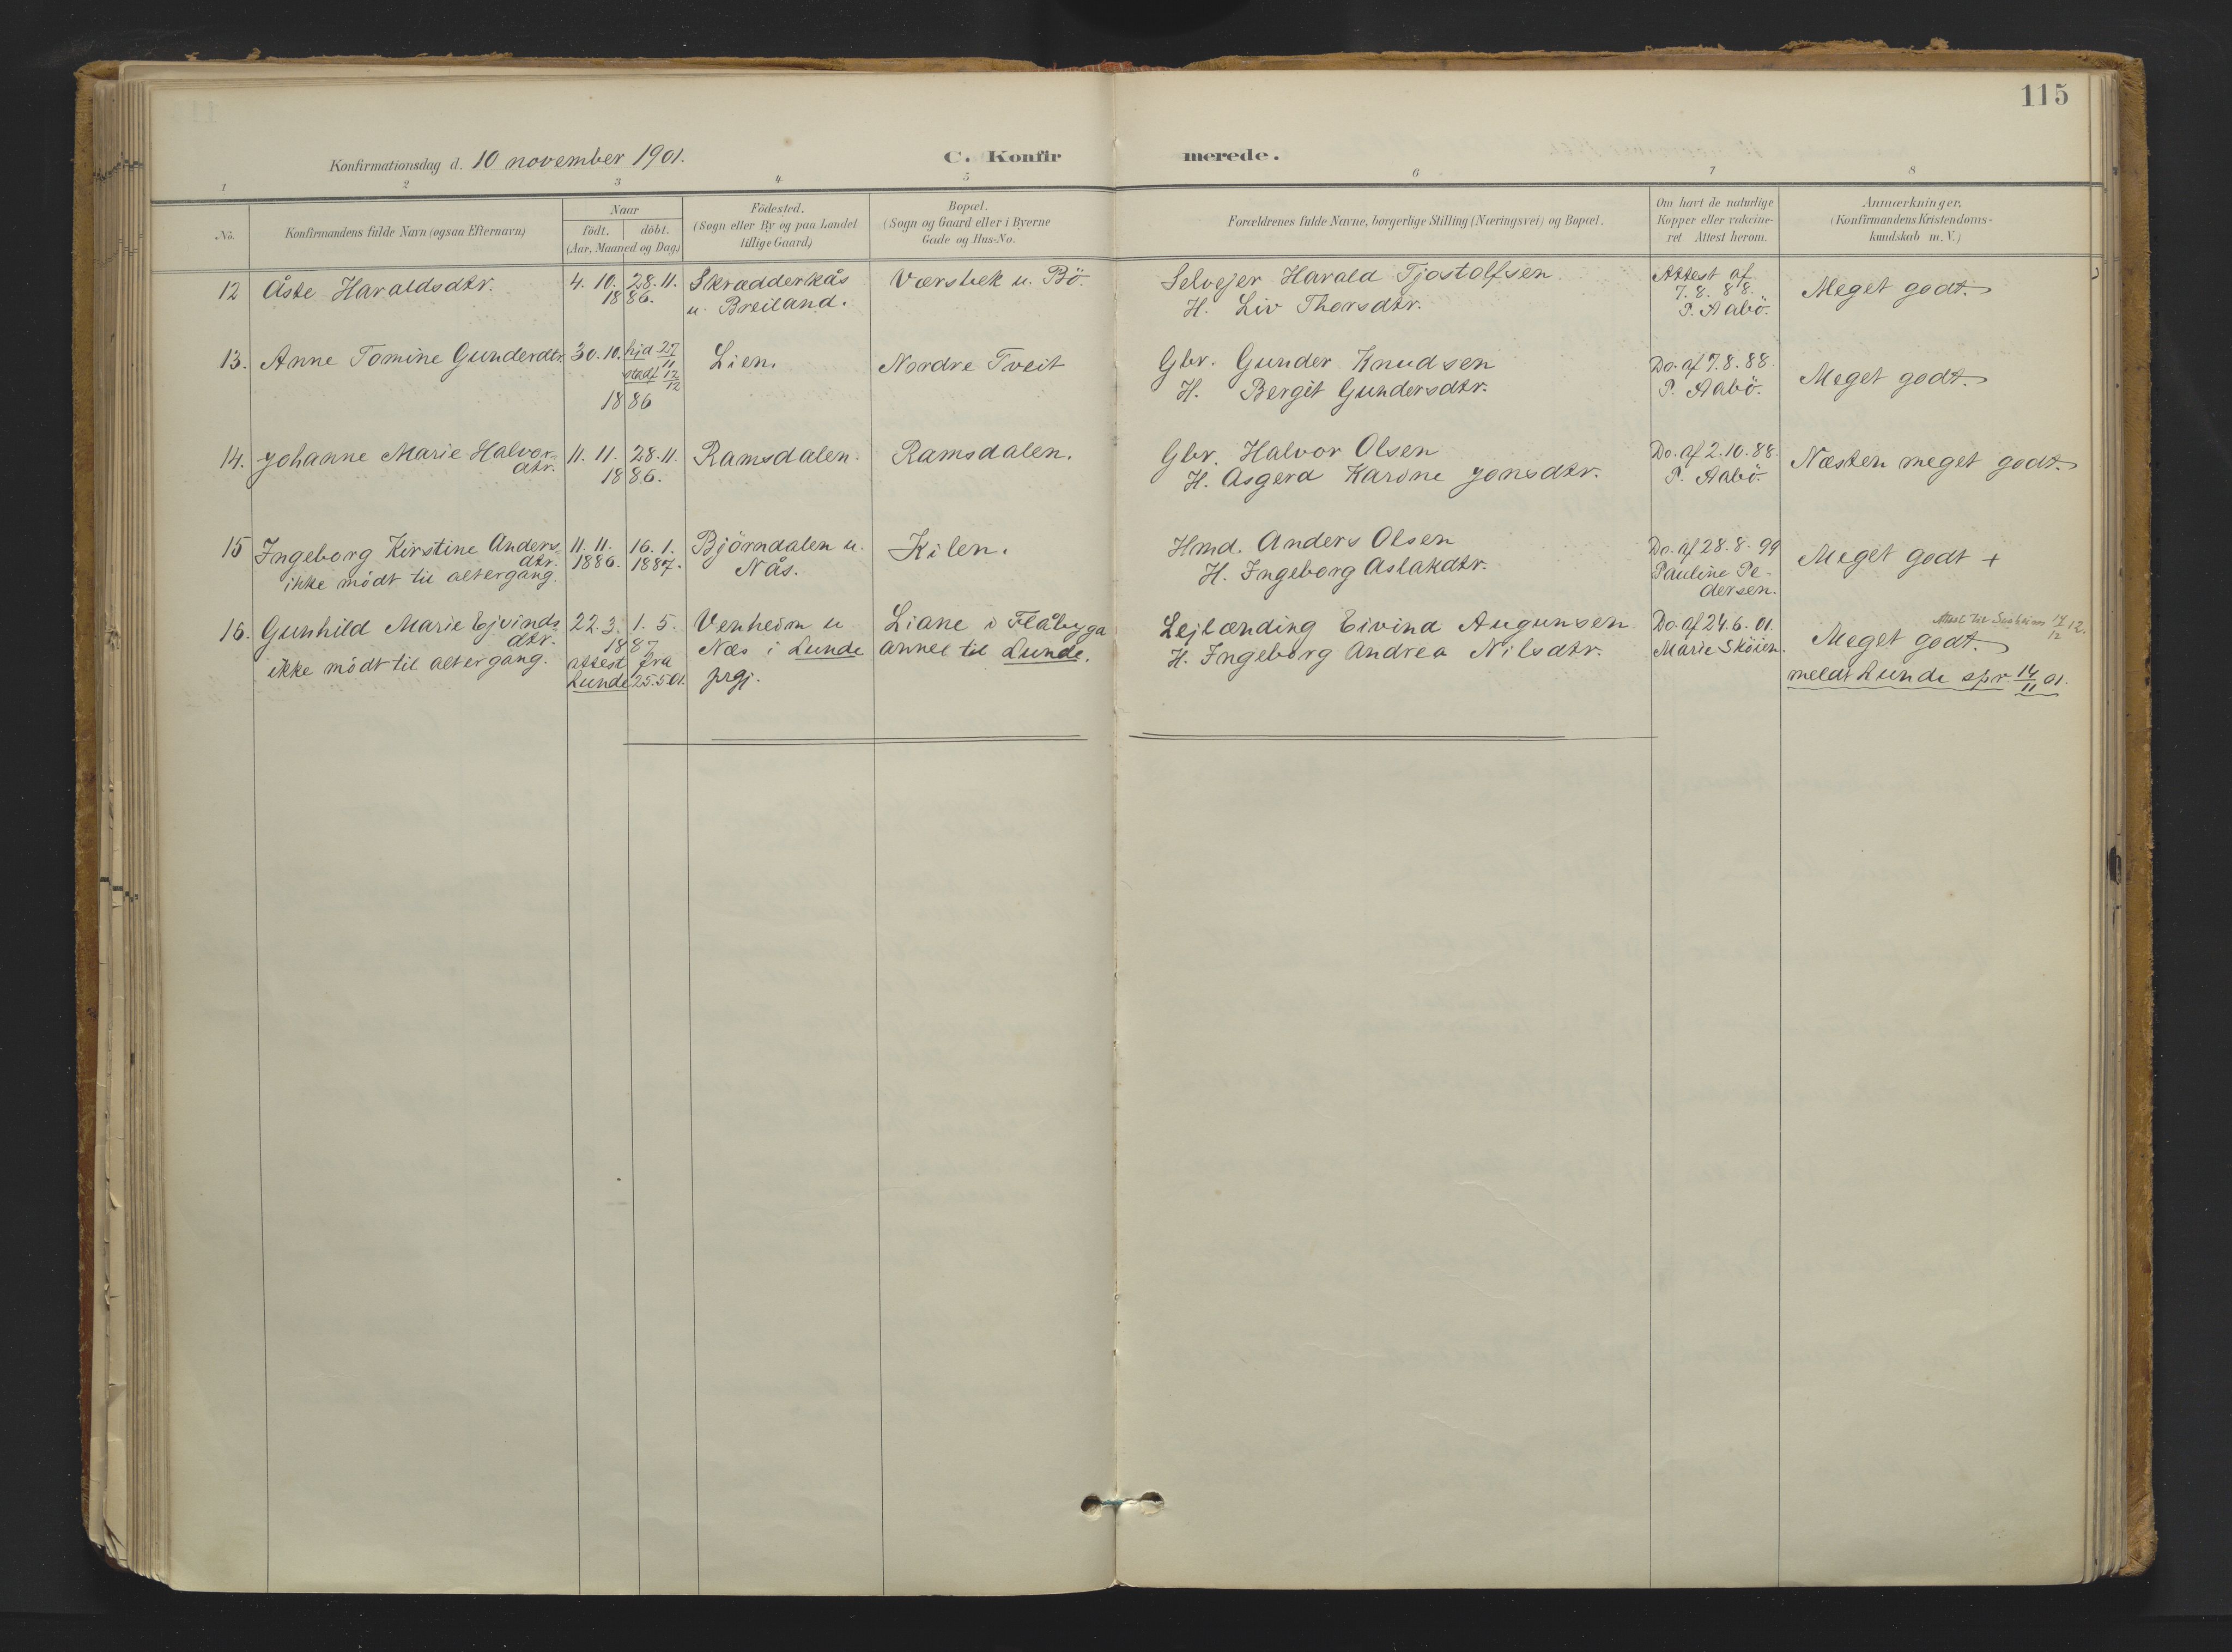 115
Konfirmationsdag d. 10 november 1901.
C. Konfir
merede.
1 2 3 4 5 6 7 8
No.
Konfirmandens fulde Navn (ogsaa Efternavn)
Naar
födt. döbt.
(Aar, Maaned og Dag)
Födested.
(Sogn eller By og paa Landet
tillige Gaard)
Bopæl.
(Sogn og Gaard eller i Byerne
Gade og Hus-No.
Forældrenes fulde Navne, borgerlige Stilling (Næringsvei) og Bopæl.
Om havt de naturlige
Kopper eller vakcine-
ret Attest herom.
Anmærkninger.
(Konfirmandens Kristendoms-
kundskab m. V.)
12 Åste Haraldsdtr. 4. 10. 28. 11. Skrædderkås Værstek u. Bö. Selvejer Harald Tjostolfsen Attest af
1886. u. Breiland. H. Liv Thorsdtr. 7. 8. 88. Meget godt.
P. Aabö.
13. Anne Tomine Gunderdtr. 30. 10. hjd 27/11 Lien. Nordre Tveit Gbr. Gunder Knudsen Do. af 7. 8. 88.
stadf. 12/12 H. Bergit Gundersdtr. P. Aabö. Meget godt.
1886
14. Johanne Marie Halvor- 11. 11. 28. 11. Ramsdalen. Ramsdalen. Gbr. Halvor Olsen Do. af 2. 10. 88. Næsten meget godt.
dtr. 1886. H. Asgerd Karine Jonsdtr. P. Aabö.
15 Ingeborg Kirstine Anders- 11. 11. 16. 1. Björndalen u. Kilen. Hmd. Anders Olsen Do. af 28. 8. 99
dtr. 1886. 1887. Nås. H. Ingeborg Aslakdtr. Pauline Pe- Meget godt +
ikke mödt til altergang. dersen.
16. Gunhild Marie Ejvinds- 22. 3. 1. 5. Venheim u Liane i Flåbygd Lejlænding Eivind Augunsen Do. af 24. 6. 01. 12.
dtr. 1887 Næs i Lunde annex til Lunde. H. Ingeborg Andrea Nilsdtr. Marie Sköien. Meget godt.
ikke mödt til altergang. attest fra prgj.
Lunde 25.5 01. meldt Lunde spr. 14/11 01.